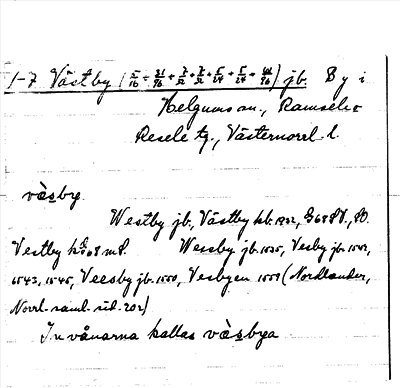 1-7 Västby (5/16 + 21/96 + 7/32 + 7/32 + 5/24 + 5/24 + 5/24 + 41/96) jb. By i
Helgums sn., Ramsele o
Resele tg., Västernorrl. l.
väsby.
Westby jb., Västby kb. 1932, G 68 SV., D.
Vestby k 68 m.fl. Wessby jb. 1535, Vesby jb. 1542,
1543, 1545, Veesby jb. 1550, Vesbyen 1559 (Nordlander,
Norrl. saml. sid. 202)
Invånarna kallas väsbya